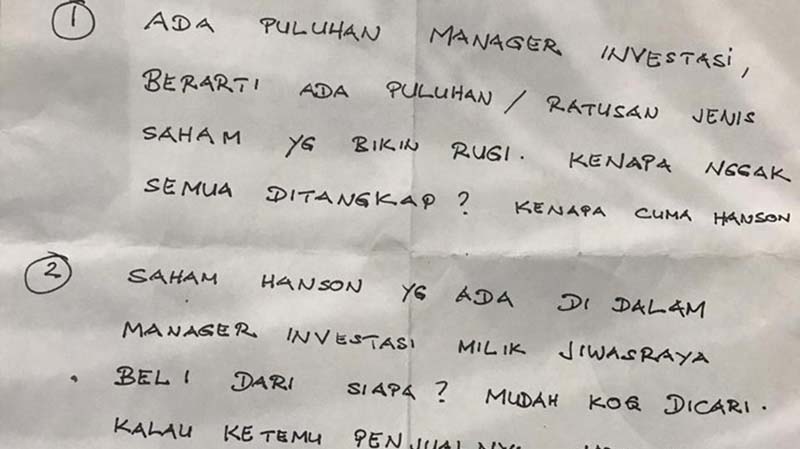 1 ADA PULUHAN MANAGER INVESTASI,
BERARTI ADA PULUHAN / RATUSAN JENIS
SAHAM YG BIKIN RUGI. KENAPA NGGAK
SEMUA DITANGKAP? KENAPA CUMA HANSON
2 SAHAM HANSON YG ADA DI DALAM
MANAGER INVESTASI MILIK JIWASRAYA
BELI DARI SIAPA? MUDAH KOQ DICARI.
KALAU KETEMU